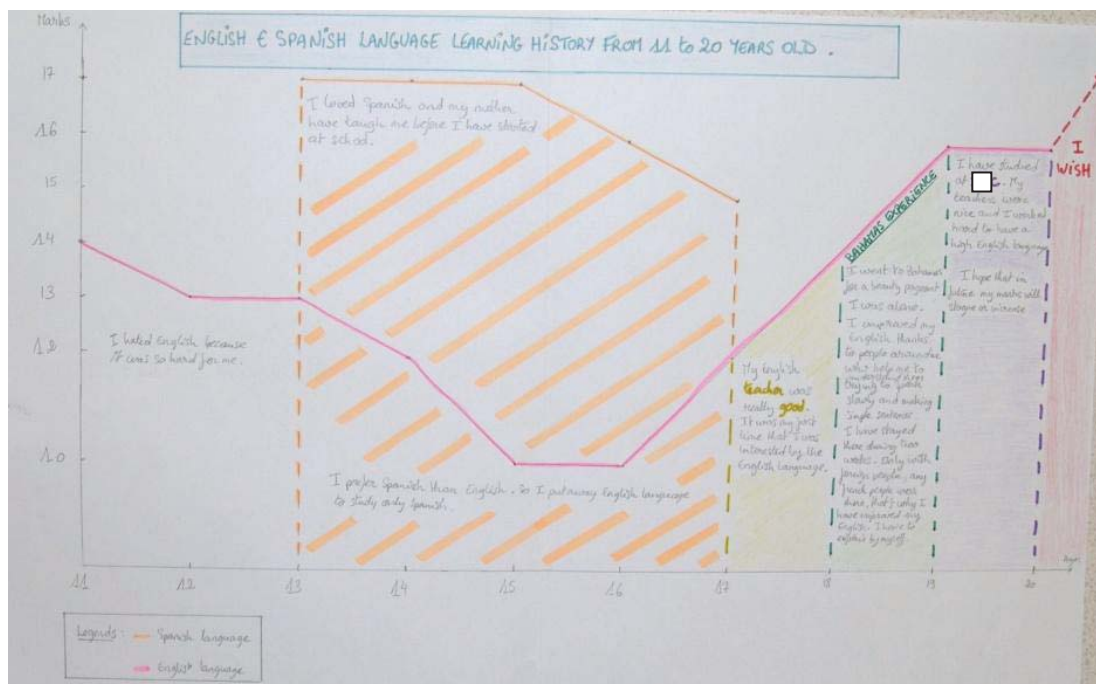 Marks
ENGLISH & SPANISH LANGUAGE LEARNING HISTORY FROM 11 to 20 YEARS OLD .
17
16
15
14
13
12
10
I loved Spanish and my mother
have taugh me before I have started
at school.
I hated English because
it was so hard for me.
I prefer Spanish than English. So I put away English language
to study only Spanish.
My English
teacher was
really good.
It was my first
time that I was
interested by the
English Language.
BAHAMAS EXPERIENCE
I went to Bahamas
for a beauty pageant
I was alone.
I improved my
English thanks
to people around me
who help me to
trying to speak
slowly and making
simple sentence
I have stayed
there during two
weeks. Only with
foreign people, any
french people were
there, that's why I
have improved my
English. I have to
explain by myself.
I have studied
at My
teachers were
nice and I worked
hard to have a
high English language
I hope that in
future my marks will
stagne or increase
I
WISH
11 12 13 14 15 16 17 18 19 20
Legends :
Spanish language
English language